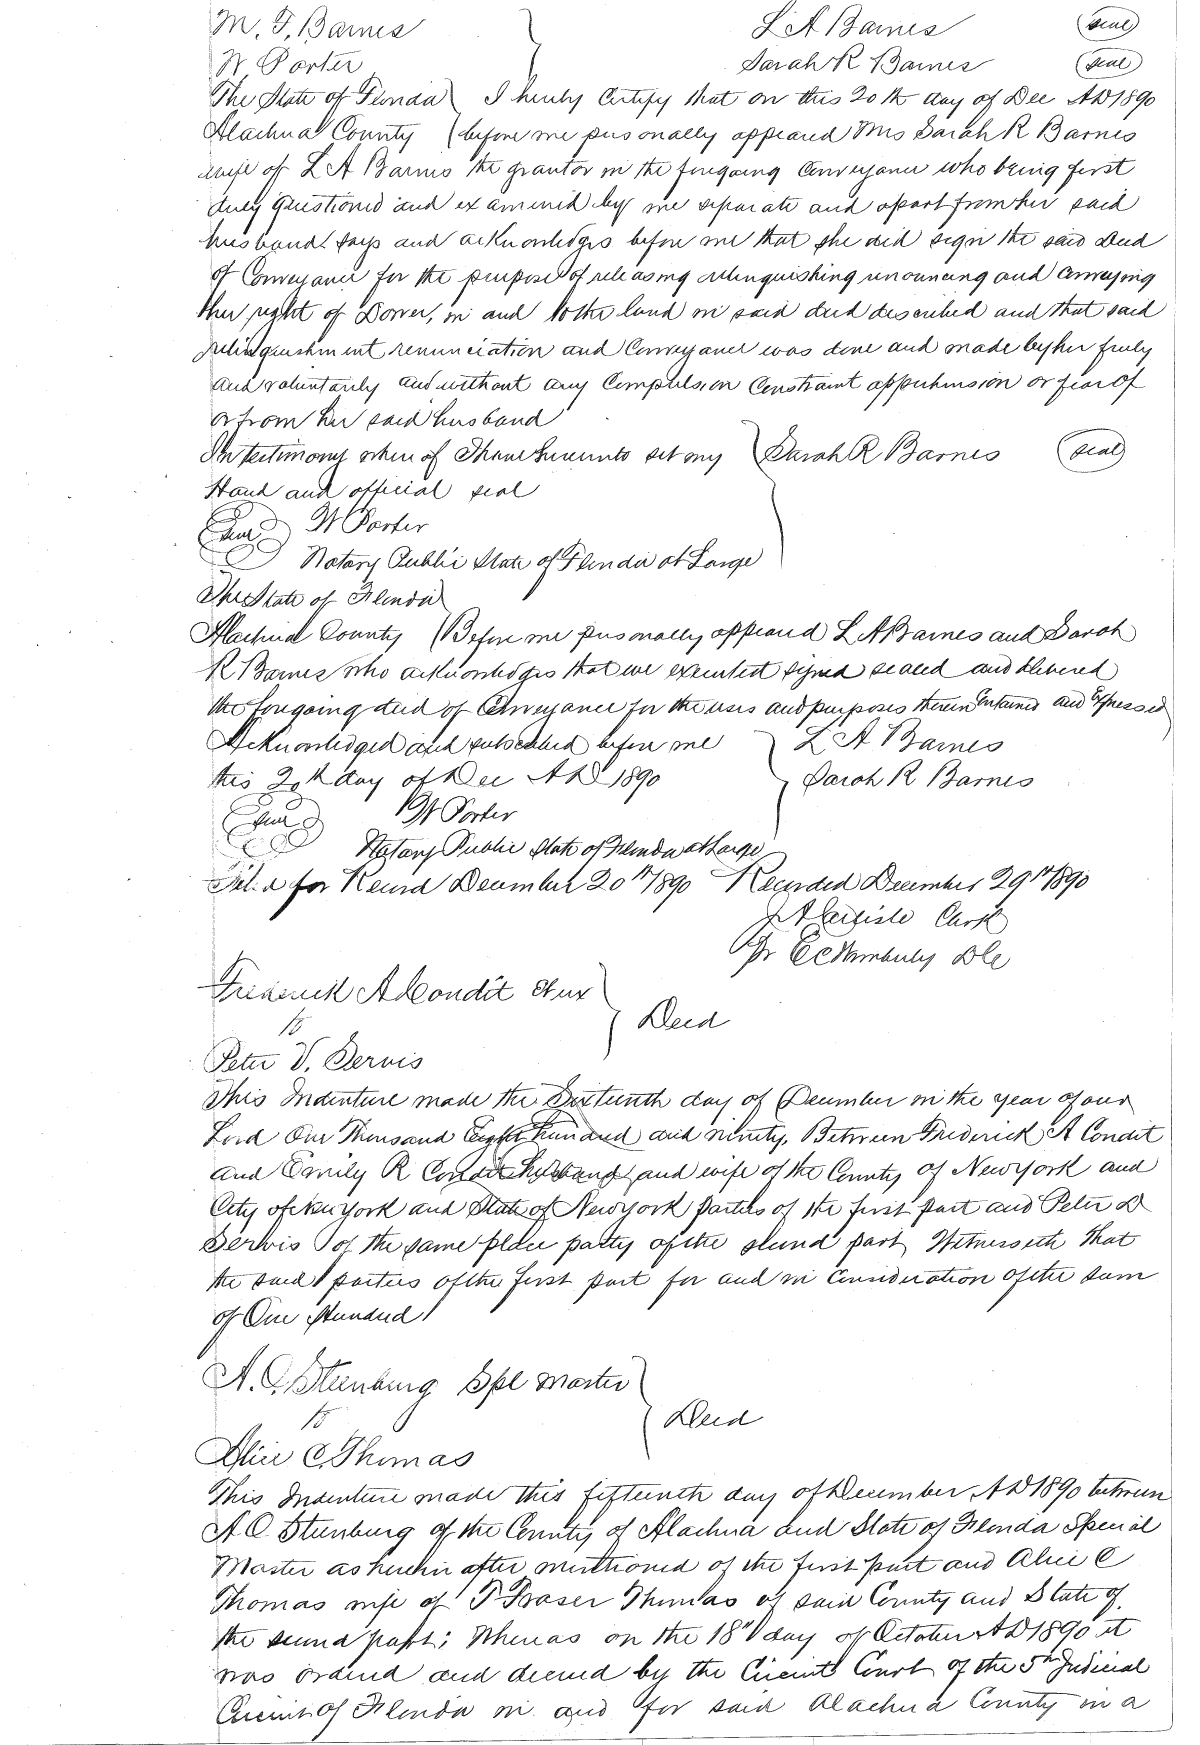 M. F. Barnes L A Barnes (seal)
W Porter Sarah R Barnes (seal)
The State of Florida I hereby Certify that on this 20th day of Dec AD 1890
Alachua County before me personally appeared Mrs Sarah R Barnes
wife of L A Barnes the grantor in the foregoing Conveyance who being first
duly questioned and examined by me separate and apart from her said
husband says and acknowledges before me that she did sign the said Deed
of Conveyance for the purpose of releasing relinquishing renouncing and Conveying
her right of Dower, in and to the land in said deed described and that said
relinquishment renunciation and Conveyance was done and made by her freely
and voluntarily and without any Compulsion Constraint apprehension or fear of
or from her said husband
In testimony where of I have hereunto set my Sarah R Barnes (seal)
Hand and official seal
Seal W Porter
Notary Public State of Florida at Large
The State of Florida
Alachua County Before me personally appeared L A Barnes and Sarah
R Barnes who acknowledges that we executed signed sealed and delivered
the foregoing deed of Conveyance for the uses and purposes therein Contained and Expressed
Acknowledged and subscribed before me L A Barnes
this 20th day of Dec AD 1890 Sarah R Barnes
Seal W Porter
Notary Public State of Florida at Large
Filed for Record December 20th 1890 Recorded December 29th 1890
J A Carlisle Clerk
Pr E C Wimberly D C
Frederick A Condit et ux
to Deed
Peter D. Servis
This Indenture made the Sixteenth day of December in the year of our
Lord One Thousand Eight hundred and ninety, Between Frederick A Condit
and Emily R Condit husband and wife of the County of New York and
City of New York and State of New York parties of the first part and Peter D
Servis of the same place party of the second part Witnesseth that
the said parties of the first part for and in Consideration of the sum
of One Hundred
A. C. Steenburg Spl Master
to Deed
Alice C. Thomas
This Indenture made this fifteenth day of December AD 1890 between
A. C. Steenburg of the County of Alachua and State of Florida Special
Master as herein after mentioned of the first part and Alice C
Thomas wife of P Fraser Thomas of said County and State of
the second part; Whereas on the 18th day of October AD 1890 it
was ordered and decreed by the Circuit Court of the 5th Judicial
Circuit of Florida in and for said Alachua County in a